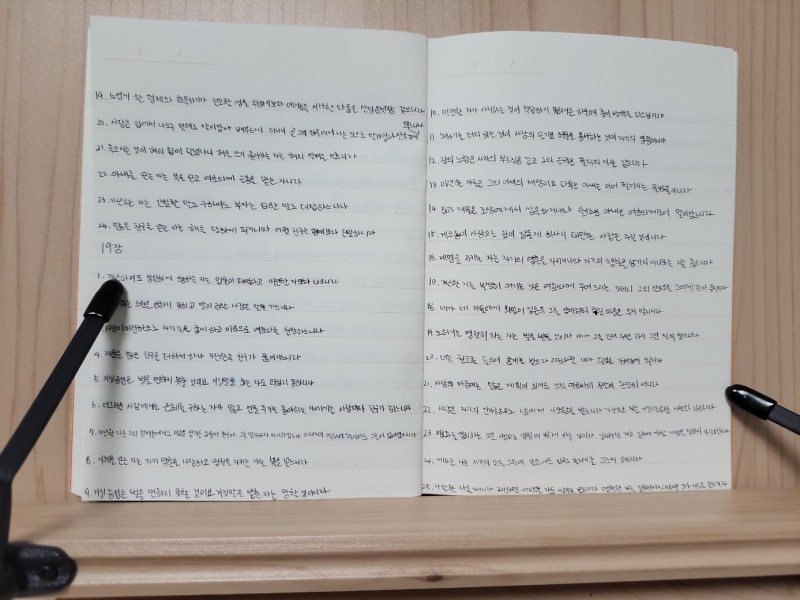 19. 노엽게 한 형제와 화목하기가 견고한 성을 취하기보다 어려운즉 이러한 다툼은 산성문빗장 같으니라
20. 사람은 입에서 나오는 열매로 말미암아 배부르게 되나니 곧 그의 입술에서 나는 것으로 말미암아 만족하게
되느니라
21. 죽고 사는 것이 혀의 힘에 달렸나니 혀를 쓰기 좋아하는 자는 혀의 열매를 먹으리라
22. 아내를 얻는 자는 복을 얻고 여호와께 은총을 받는 자니라
23. 가난한 자는 간절한 말로 구하여도 부자는 엄한 말로 대답하느니라
24. 많은 친구를 얻는 자는 해를 당하게 되거니와 어떤 친구는 형제보다 친밀하니라
19장
1. 가난하여도 성실하게 행하는 자는 입술이 패역하고 미련한 자보다 나으니라
소원은 선하지 못하고 발이 급한 사람은 잘못 가느니라
사람이 미련하므로 자기 길을 굽게 하고 마음으로 여호와를 원망하느니라
4. 재물은 많은 친구를 더하게 하나 가난한즉 친구가 끊어지느니라
5. 거짓증인은 벌을 면하지 못할 것이요 거짓말을 하는 자도 피하지 못하리라
6. 너그러운 사람에게는 은혜를 구하는 자가 많고 선물 주기를 좋아하는 자에게는 사람마다 친구가 되느니라
7. 가난한 자는 그의 형제들에게도 미움을 받거든
8. 지혜를 얻는 자는 자기 영혼을 사랑하고 명철을 지키는 자는 복을 얻느니라
9. 거짓 증인은 벌을 면하지 못할 것이요 거짓말을 뱉는 자는 망할 것이니라
10. 미련한 자가 사치하는 것이 적당하지 못하거든 하물며 종이 방백을 다스림이랴
11. 노하기를 더디 하는 것이 사람의 슬기요 허물을 용서하는 것이 자기의 영광이니라
12. 왕의 노함은 사자의 부르짖음 같고 그의 은택은 풀 위의 이슬 같으니라
13. 미련한 아들은 그의 아비의 재앙이요 다투는 아내는 이어 떨어지는 물방울이니라
14. 집과 재물은 조상에게서 상속하거니와 슬기로운 아내는 여호와께로서 말미암느니라
15. 게으름이 사람으로 깊이 잠들게 하나니 태만한 사람은 주릴 것이니라
16. 계명을 지키는 자는 자기의 영혼을 지키거니와 자기의 행실을 삼가지 아니하는 자는 죽으리라
17. 가난한 자를 불쌍히 여기는 것은 여호와께 꾸어 드리는 것이니 그의 선행을 그에게 갚아 주시리라
18. 네가 네 아들에게 희망이 있은즉 그를 징계하되 죽일 마음은 두지 말지니라
19. 노하기를 맹렬히 하는 자는 벌을 받을 것이라 네가 그를 건져 주면 다시 그런 일이 생기리라
20. 너는 권고를 들으며 훈계를 받으라 그리하면 네가 필경은 지혜롭게 되리라
21. 사람의 마음에는 많은 계획이 있어도 오직 여호와의 뜻만이 완전히 서리라
22. 사람은 자기의 인자함으로 남에게 사모함을 받느니라 가난한 자는 거짓말하는 자보다 나으니라
23. 여호와를 경외하는 것은 사람으로 생명에 이르게 하는 것이라
24. 게으른 자는 자기의 손을 그릇에 넣고서도 입으로 올리기를 괴로워하느니라
25. 거만한 자를 때리라 그리하면 어리석은 자도 지혜를 얻으리라